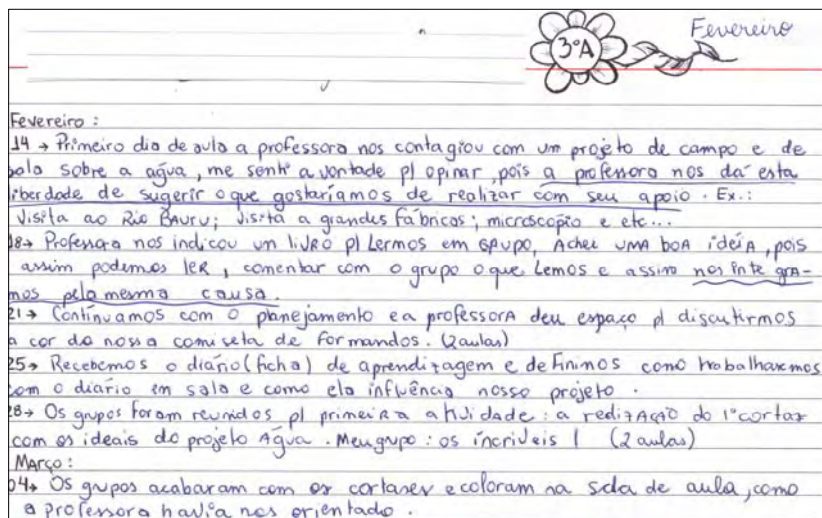 Fevereiro
3ºA
Fevereiro :
14 → Primeiro dia de aula a professora nos contagiou com um projeto de campo e de
sala sobre a água, me senti a vontade p/ opinar, pois a professora nos dá esta
liberdade de sugerir o que gostaríamos de realizar com seu apoio. Ex.:
Visita ao Rio Bauru; visita a grandes fábricas; microscópio e etc...
18→ Professora nos indicou um livro p/ Lermos em grupo, Achei uma boa ideía, pois
assim podemos ler, comentar com o grupo o que Lemos e assim nos integra-
mos pela mesma causa.
21→ Continuamos com o planejamento e a professora deu espaço p/ discutirmos
a cor da nossa camiseta de formandos. (2 aulas)
25→ Recebemos o diário (ficha) de aprendizagem e definimos como trabalharemos
com o diário em sala e como ela influência nosso projeto.
28→ Os grupos foram reunidos p/ primeira atividade: a redização do 1º cartaz
com os ideais do projeto Água. Meu grupo: os incríveis ! (2 aulas)
Março :
04→ Os grupos acabaram com os cartazes e colaram na sala de aula, como
a professora havia nos orientado.